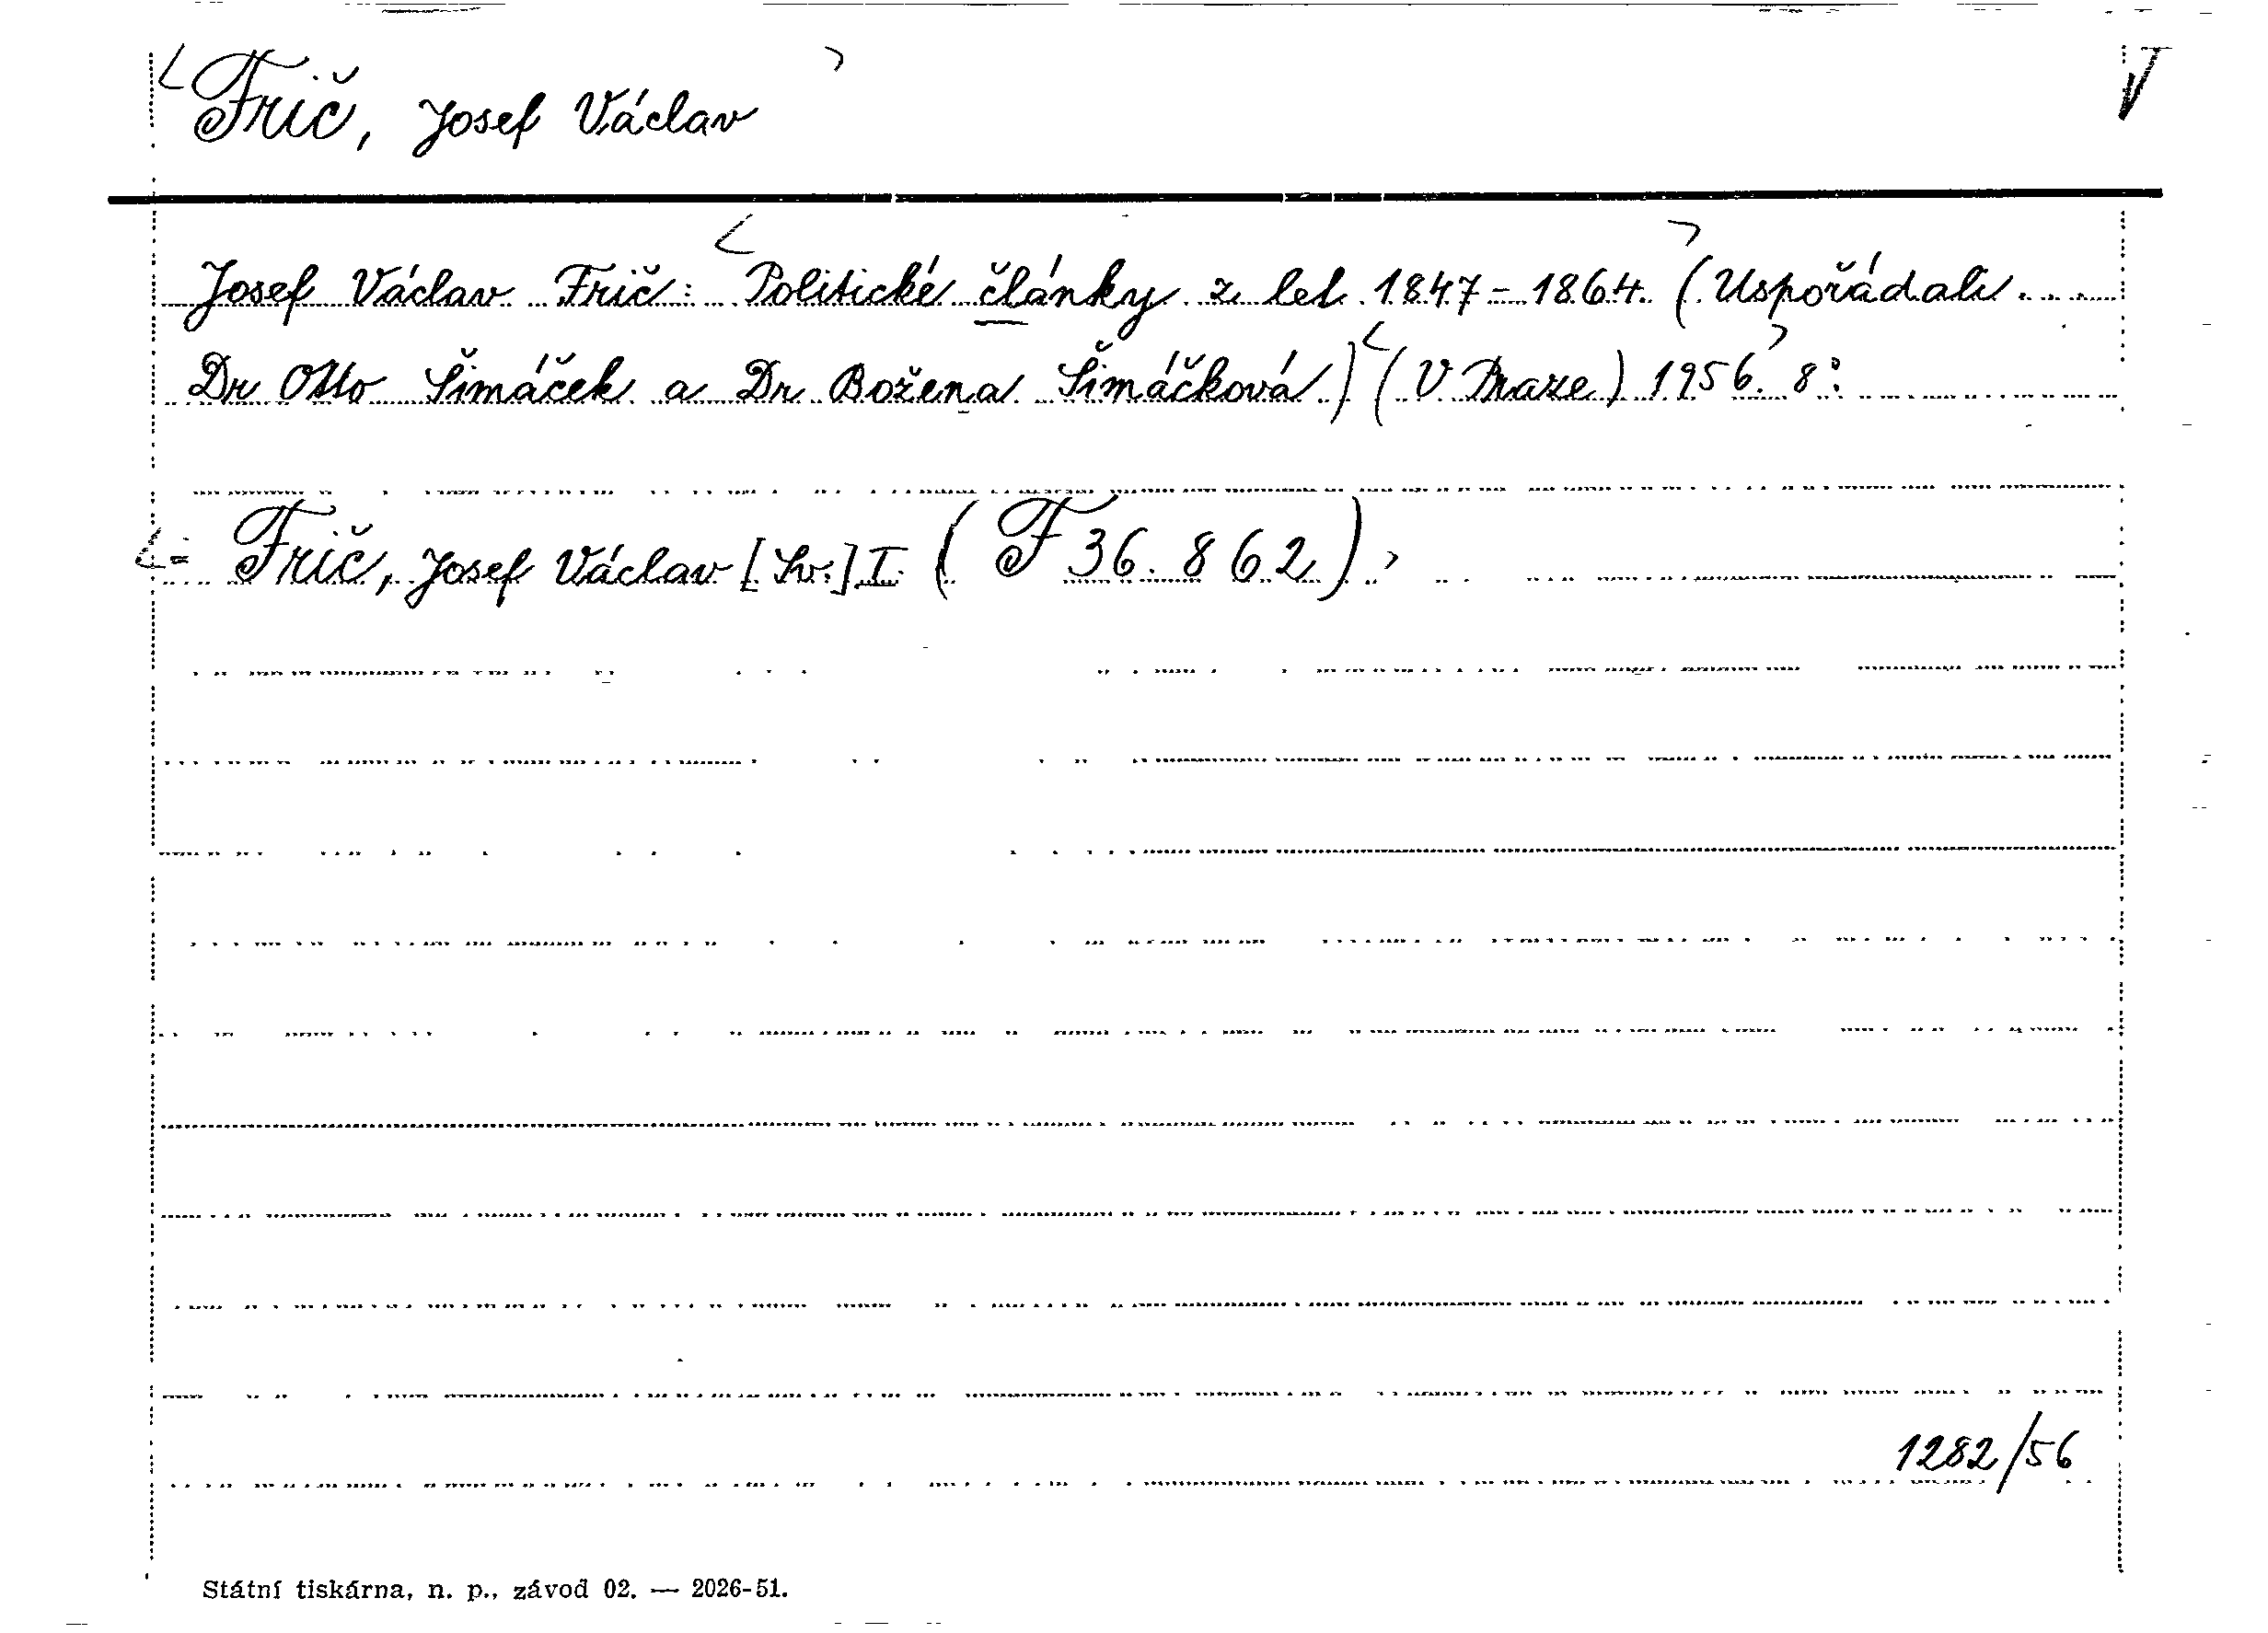 <Frič, Josef Václav>
Josef Václav Frič: <Politické články z let 1847-1864.> (Uspořádali
Dr Otto Šimáček a Dr Božena Šimáčková.) <(V Praze) 1956.> 8°.
<= Frič, Josef Václav [Sv.] I. (F 36.862).>
1282/56
Státní tiskárna, n. p., závod 02. — 2026-51.